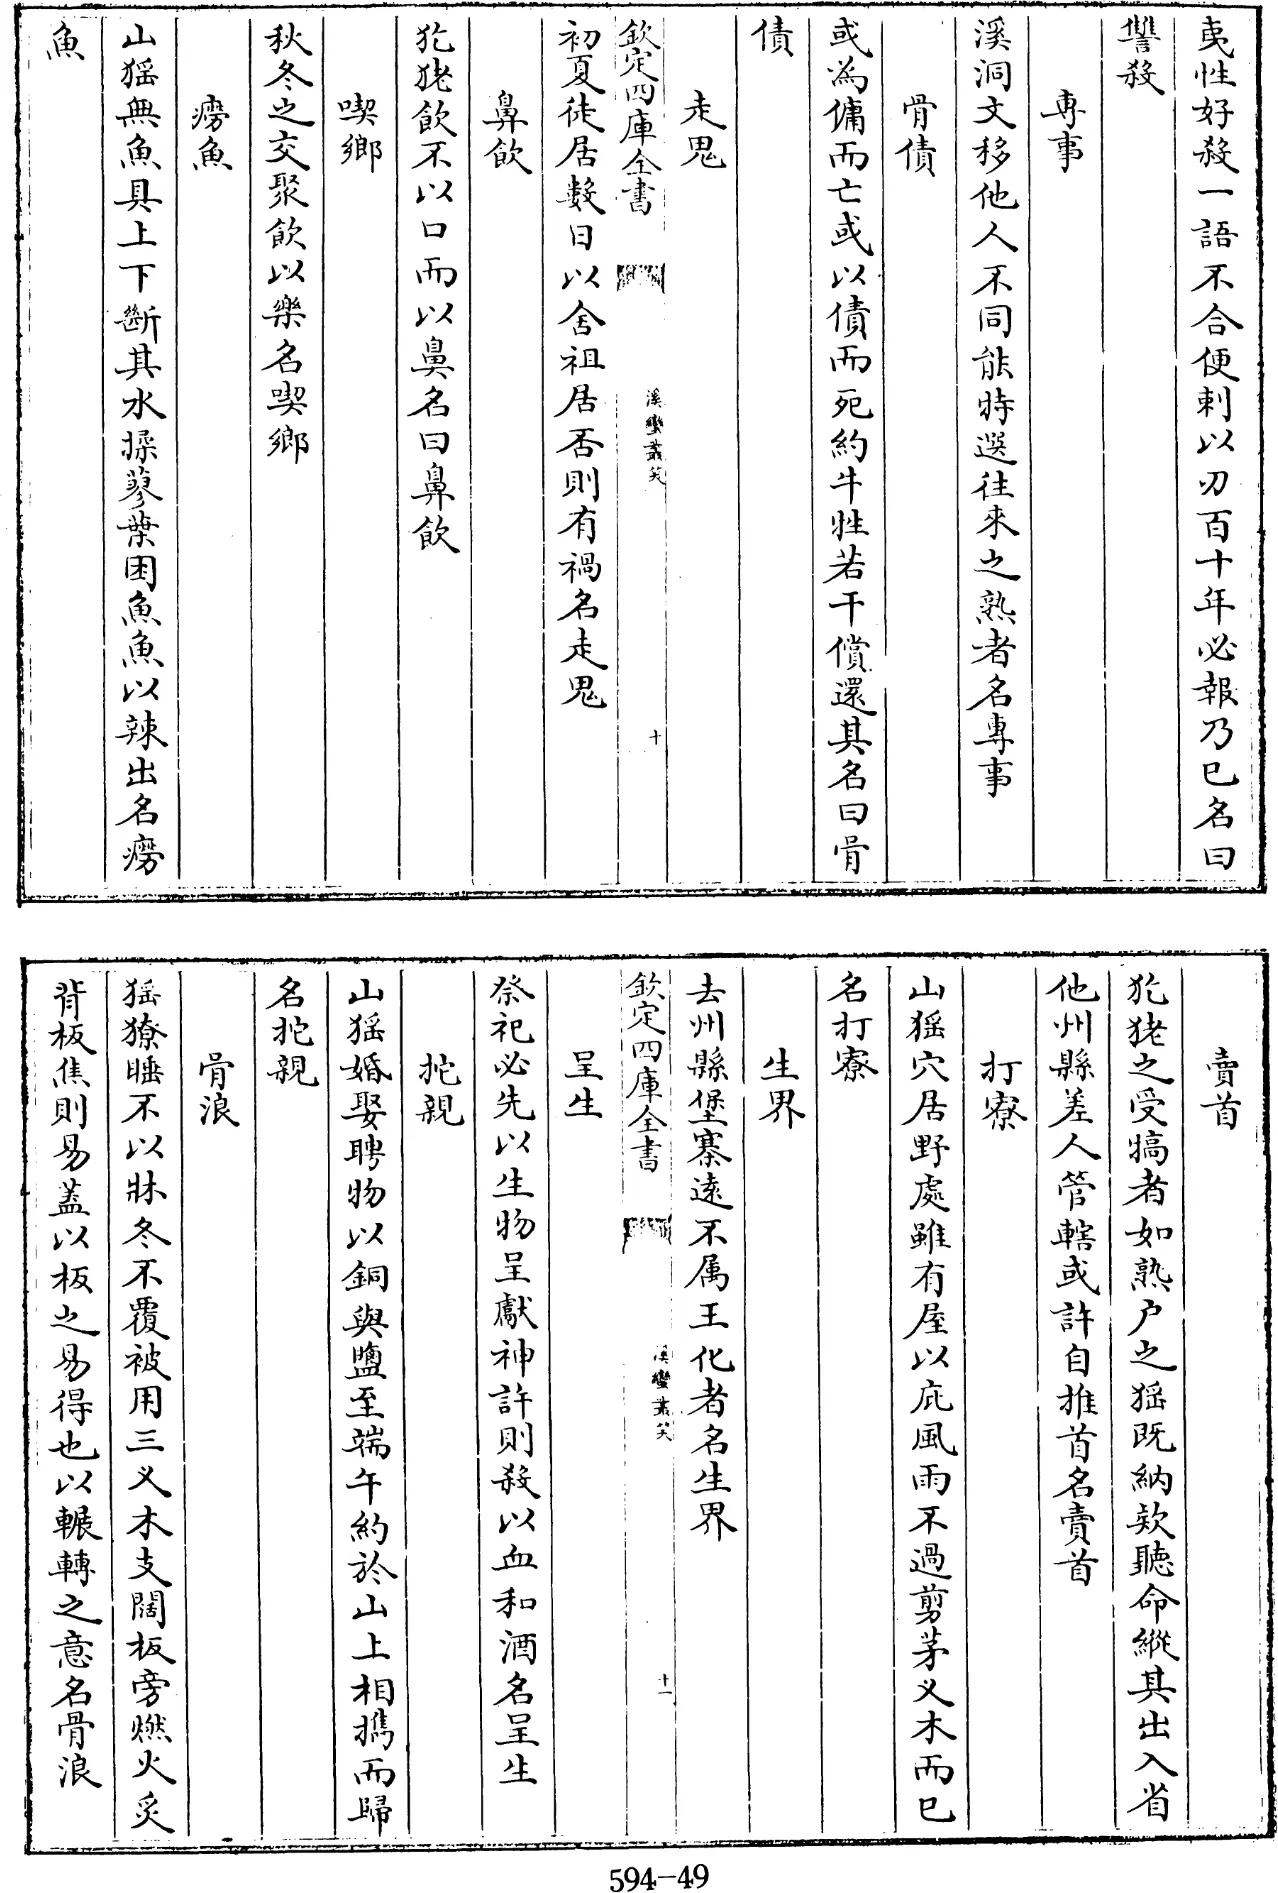 夷性好殺一語不合便剌以刃百十年必報乃已名曰
讐殺
專事
溪洞文移他人不同能特選往來之熟者名專事
骨債
或為傭而亡或以債而死約牛牲若干償還其名曰骨
債
走鬼
欽定四庫全書
溪蠻叢笑
十
初夏徙居數日以舍祖居否則有禍名走鬼
鼻飲
犵狫飲不以口而以鼻名曰鼻飲
喫鄉
秋冬之交聚飲以樂名喫鄉
癆魚
山猺無魚具上下斷其水揉蓼葉困魚魚以辣出名癆
魚
賣首
犵狫之受犒者如熟户之猺既納欵聽命縱其出入省
他州縣差人管轄或許自推首名賣首
打寮
山猺穴居野處雖有屋以庇風雨不過剪茅乂木而已
名打寮
生界
去州縣堡寨遠不属王化者名生界
欽定四庫全書
溪蠻叢笑
十一
呈生
祭祀必先以生物呈獻神許則殺以血和酒名呈生
拕親
山猺婚娶聘物以銅與鹽至端午約於山上相攜而歸
名拕親
骨浪
猺獠睡不以牀冬不覆被用三乂木支闊板旁燃火炙
背板焦則易蓋以板之易得也以輾轉之意名骨浪
594-49